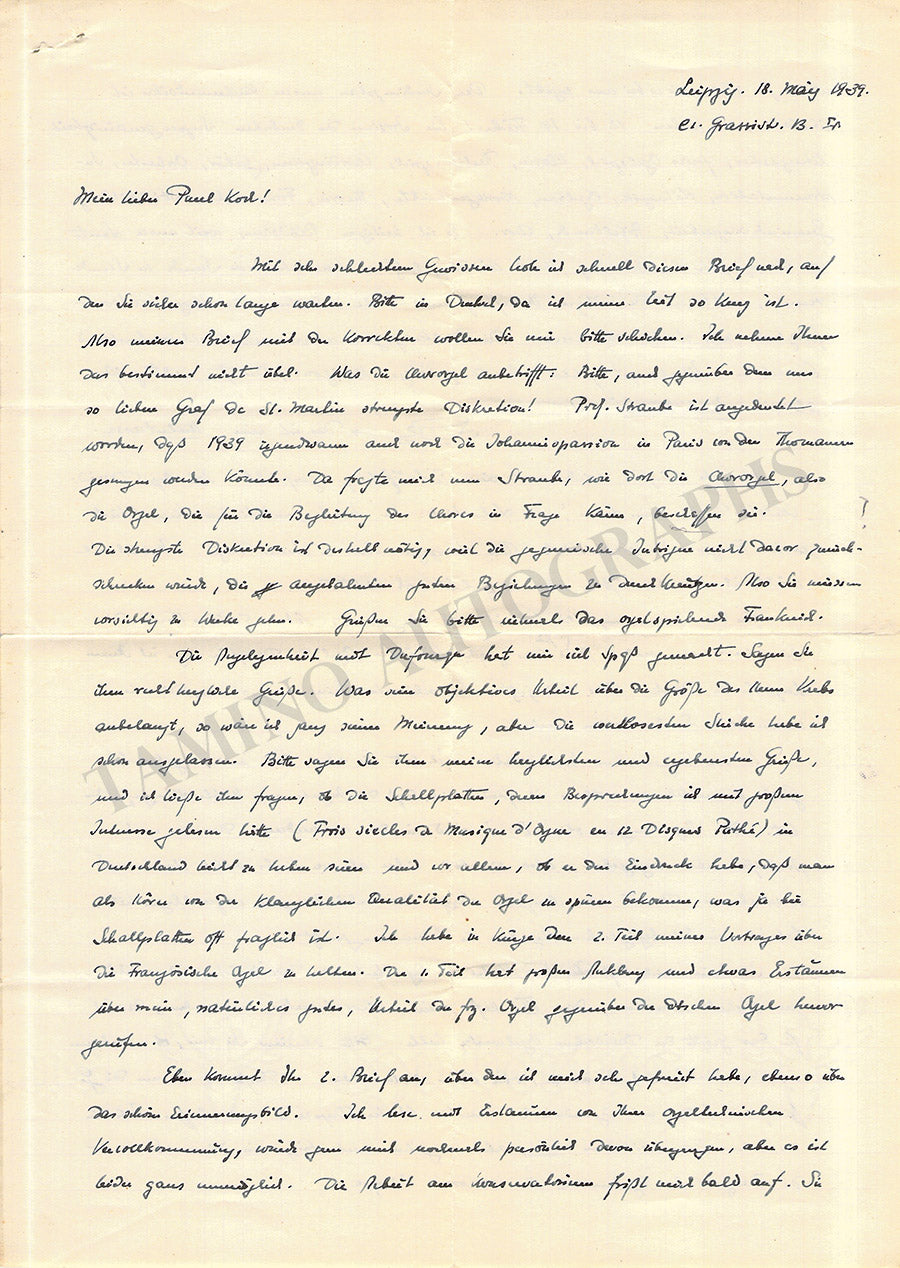 Leipzig. 18. März 1939.
C1. Grassistr. B. Ir
Mein lieber Paul Koch!
Mit sehr schlechtem Gewissen hole ich schnell diesen Brief nach, auf
den Sie sicher schon lange warten. Bitte in Dunkel, da ich meine Zeit so knapp ist.
Also meinen Brief mit den Korrekturen wollen Sie mir bitte schicken. Ich nehme Ihnen
das bestimmt nicht übel. Was die Chororgel anbetrifft: Bitte, auch gegenüber dem uns
so lieben Graf de St. Martin strengste Diskretion! Prof. Straube ist angedeutet
worden, daß 1939 irgendwann auch noch die Johannispassion in Paris von den Thomanern
gesungen werden könnte. Da fragte mich nun Straube, wie dort die Chororgel, also
die Orgel, die für die Begleitung des Chores in Frage käme, beschaffen sei.
Die strengste Diskretion ist deshalb nötig, weil die gegnerische Intrigue nicht davor zurück-
schrecken würde, die angebahnten guten Beziehungen zu durchkreuzen. Also Sie müssen
vorsichtig zu Werke gehn. Grüßen Sie bitte vielmals das orgelspielende Frankreich.
Die Angelegenheit mit Dufourcq hat mir viel Spaß gemacht. Sagen Sie
ihm recht herzliche Grüße. Was sein objektives Urteil über die Größe des Herrn Krebs
anbelangt, so wäre ich ganz seiner Meinung, aber die wertlosesten Stücke habe ich
schon ausgelassen. Bitte sagen Sie ihm meine herzlichsten und ergebensten Grüße,
und ich ließe ihn fragen, ob die Schallplatten, deren Besprechungen ich mit großem
Interesse gelesen hätte (Trois siecles de Musique d'Orgue en 12 Disques Pathé) in
Deutschland leicht zu haben seien und vor allem, ob er den Eindruck habe, daß man
als Hörer von der klanglichen Qualität der Orgel zu spüren bekomme, was ja bei
Schallplatten oft fraglich ist. Ich habe in Kürze den 2. Teil meines Vortrages über
die Französische Orgel zu halten. Der 1. Teil hat großen Anklang und etwas Erstaunen
über mein, natürliches gutes, Urteil der frz. Orgel gegenüber der dtschen Orgel hervor
gerufen.
Eben kommt Ihr 2. Brief an, über den ich mich sehr gefreut habe, ebenso über
das schöne Erinnerungsbild. Ich lese mit Erstaunen von Ihrer orgeltechnischen
Vervollkommnung, würde gern mich nochmals persönlich davon überzeugen, aber es ist
leider ganz unmöglich. Die Arbeit am Konservatorium frißt mich bald auf. Sie
TAMINO AUTOGRAPHS